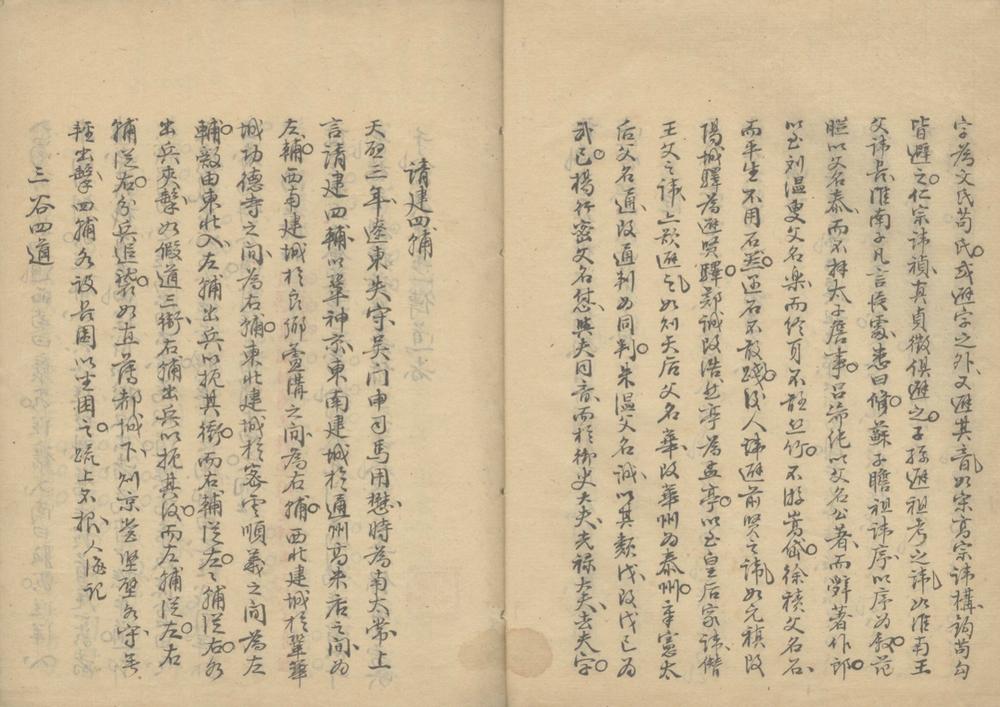 字為文氏苟氏或避字之外又避其音如宋高宗諱構詢苟勾
皆避之仁宗諱禎真貞徵俱避之子孫避祖考之諱如淮南王
父諱長淮南子凡言長處悉曰修蘇子瞻祖諱序以序為叙范
曄以父名泰而不拜太子詹事呂希純以父名公著而辭著作郎
以至劉溫叟父名樂而終身不聽絲竹不游嵩岱徐積父名石
而平生不用石器遇石不敢踐後人諱避前賢之諱如元稹改
陽城驛為避賢驛鄭誠改浩然亭為孟亭以至皇后家諱僭
王父之諱上欵避之如則天后父名華改華州為泰州章憲太
后父名通改通判為同判朱溫父名誠以其類戊改戊己為
武己楊行密父名怤與夫同音而於御史大夫光祿大夫去夫字
請建四輔
天啟三年遼東失守吳門申司馬用懋時為南太常上
言請建四輔以鞏神京東南建城於通州高米店之間為
左輔西南建城於良鄉蘆溝之間為右輔西北建城於鞏華
城功德寺之間為右輔東北建城於密雲順義之間為左
輔敵由東北入左輔出兵以扼其衝而右輔從左左輔從右各
出兵夾擊如假道三衛右輔出兵以扼其後而左輔從左右
輔從右分兵追襲如直薄都城下則京營堅壁各守美
輕出擊四輔各設長圍以坐困之疏上不報人咸記
三谷四道